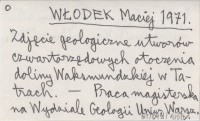 WŁODEK Maciej 1971.
Zdjęcie geologiczne utworów
czwartorzędowych otoczenia
doliny Waksmundzkiej w Ta-
trach. — Praca magisterska
na Wydziale Geologii Uniw. Warsz.